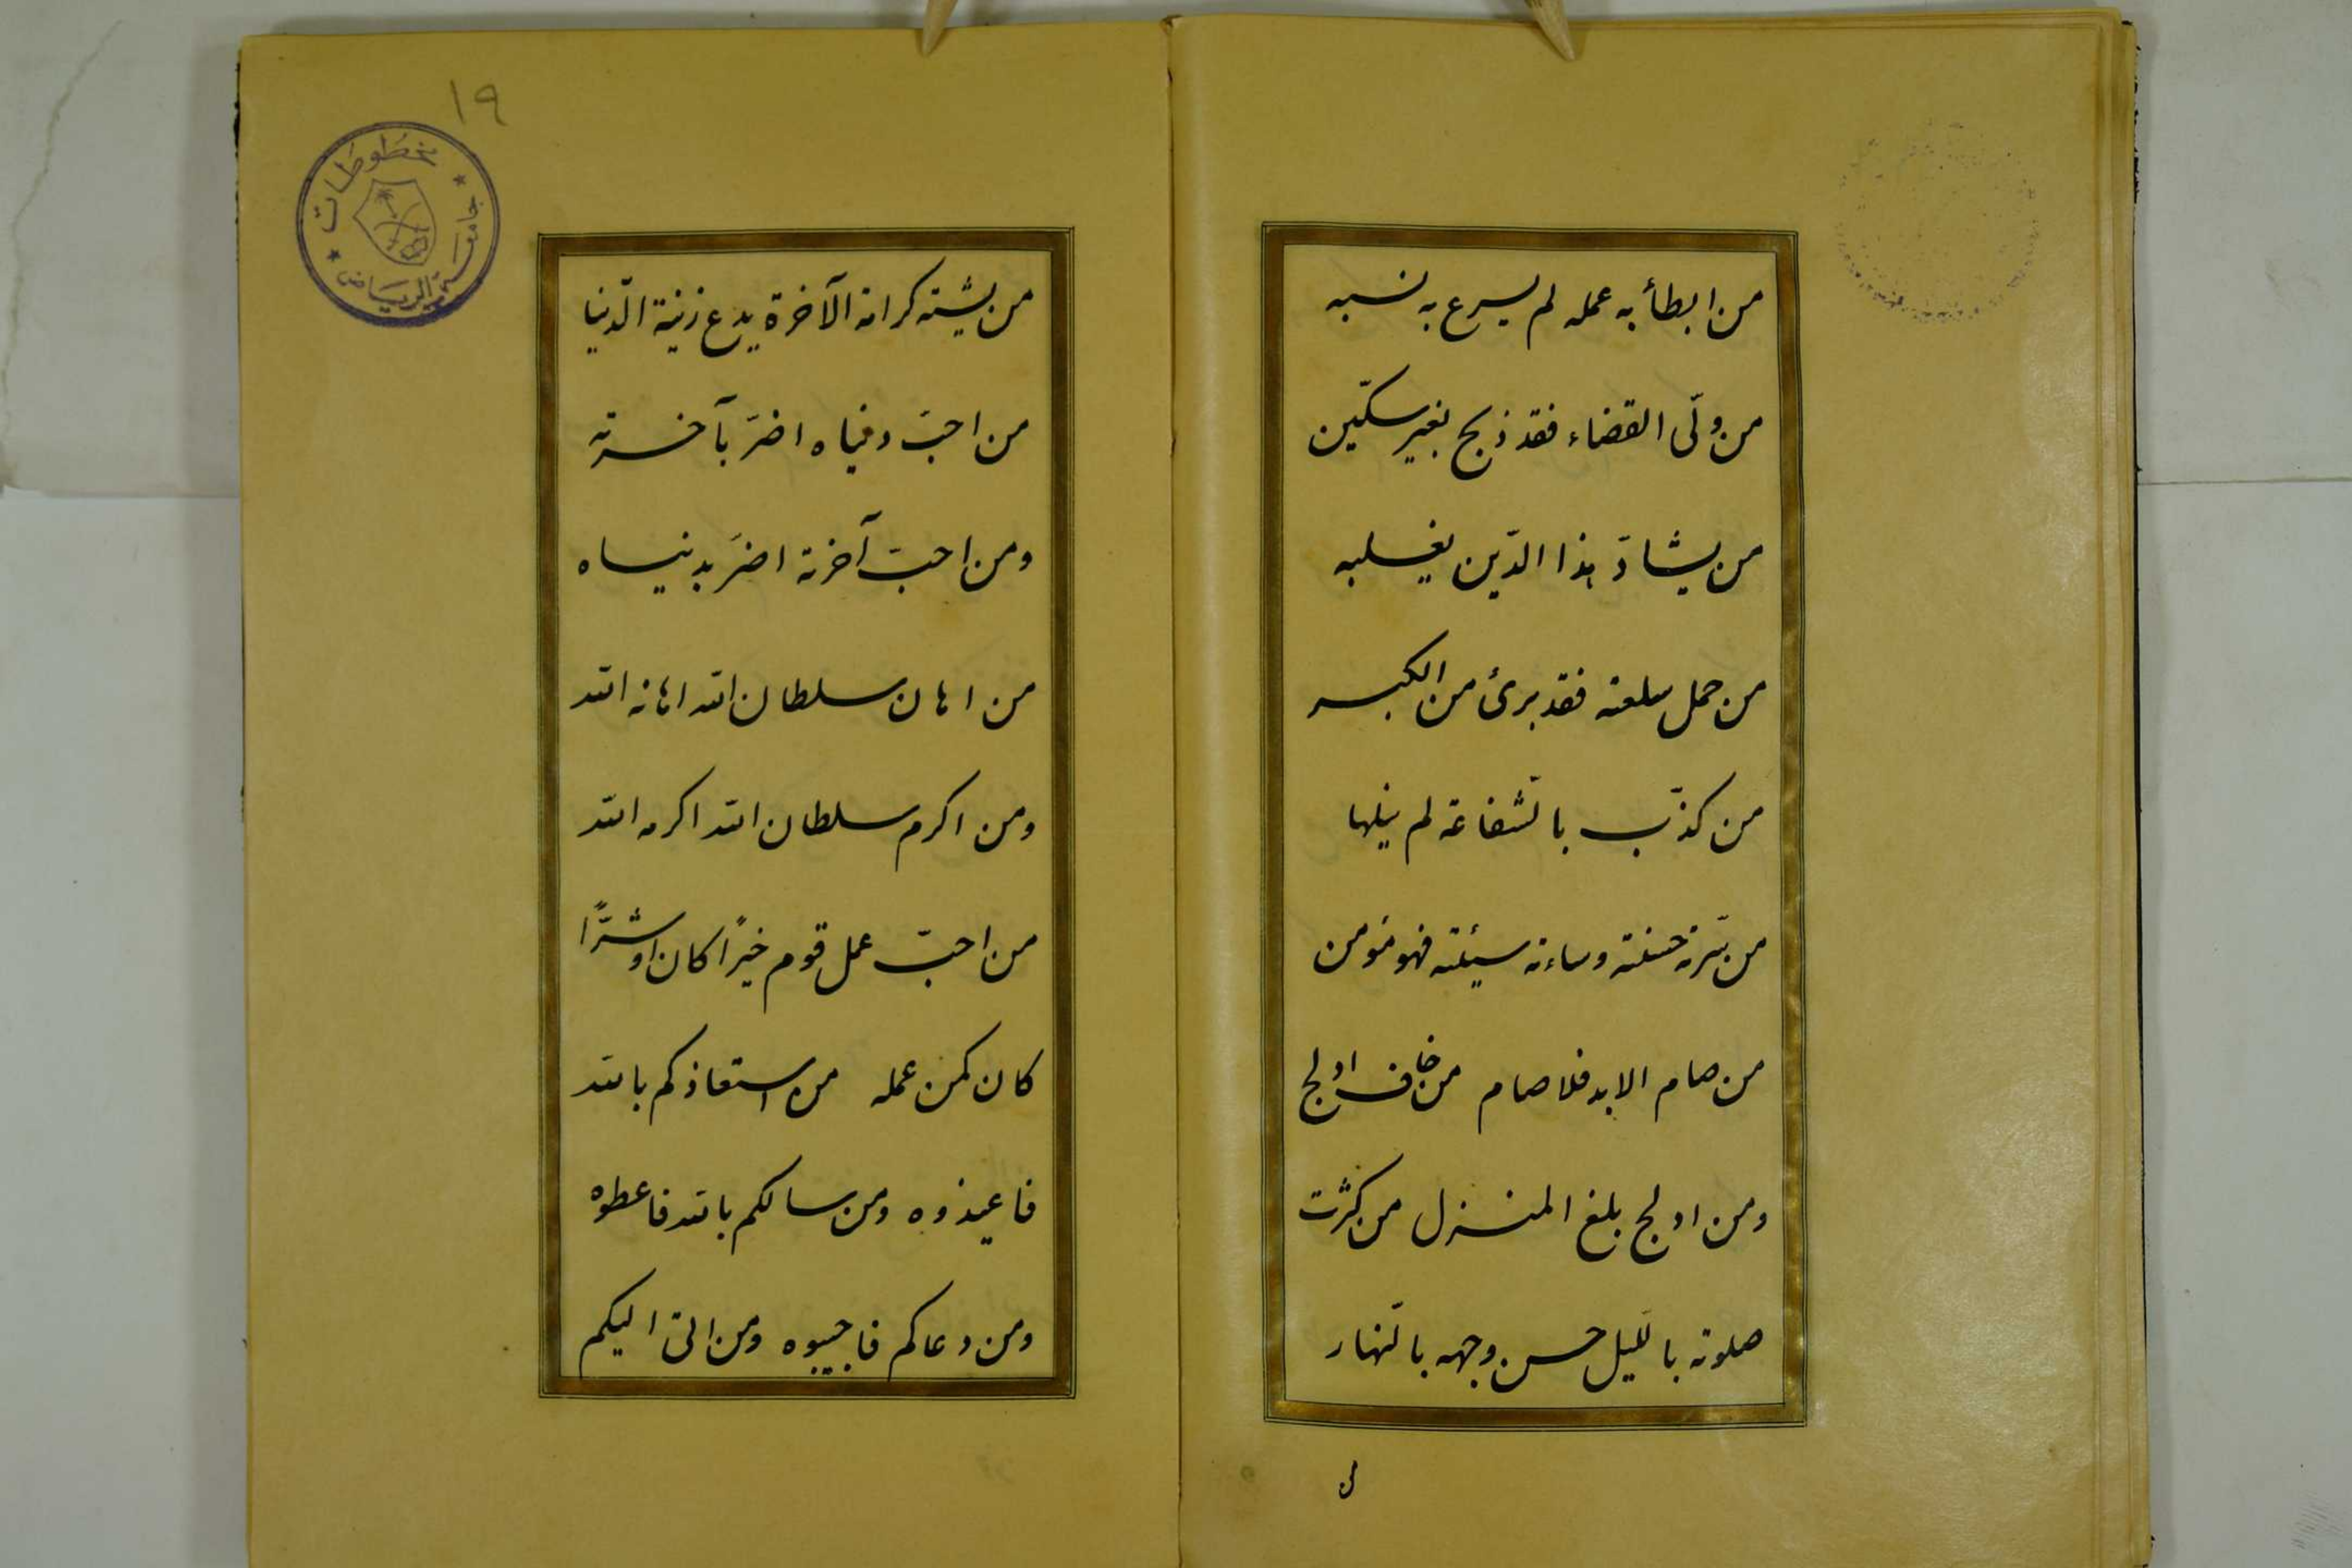 من ابطأ به عمله لم يسرع به نسبه
من ولّى القضاء فقد ذبح بغير سكّين
من يشادّ هذا الدّين يغلبه
من حمل سلعته فقد برئ من الكبر
من كذّب بالشّفاعة لم ينلها
من سرّته حسنته وساءته سيئته فهو مؤمن
من صام الابد فلا صام من خاف ادلج
ومن ادلج بلغ المنزل من كثرت
صلوته باللّيل حسن وجهه بالنّهار
من
١٩
مخطوطات
جامعة الرياض
من يشته كرامة الآخرة يدع زينة الدّنيا
من احبّ دنياه اضرّ بآخرته
ومن احبّ آخرته اضرّ بدنياه
من اهان سلطان الله اهانه الله
ومن اكرم سلطان الله اكرمه الله
من احبّ عمل قوم خيرًا كان او شرًّا
كان كمن عمله من استعاذكم بالله
فاعيذوه ومن سالكم بالله فاعطوه
ومن دعاكم فاجيبوه ومن اتى اليكم